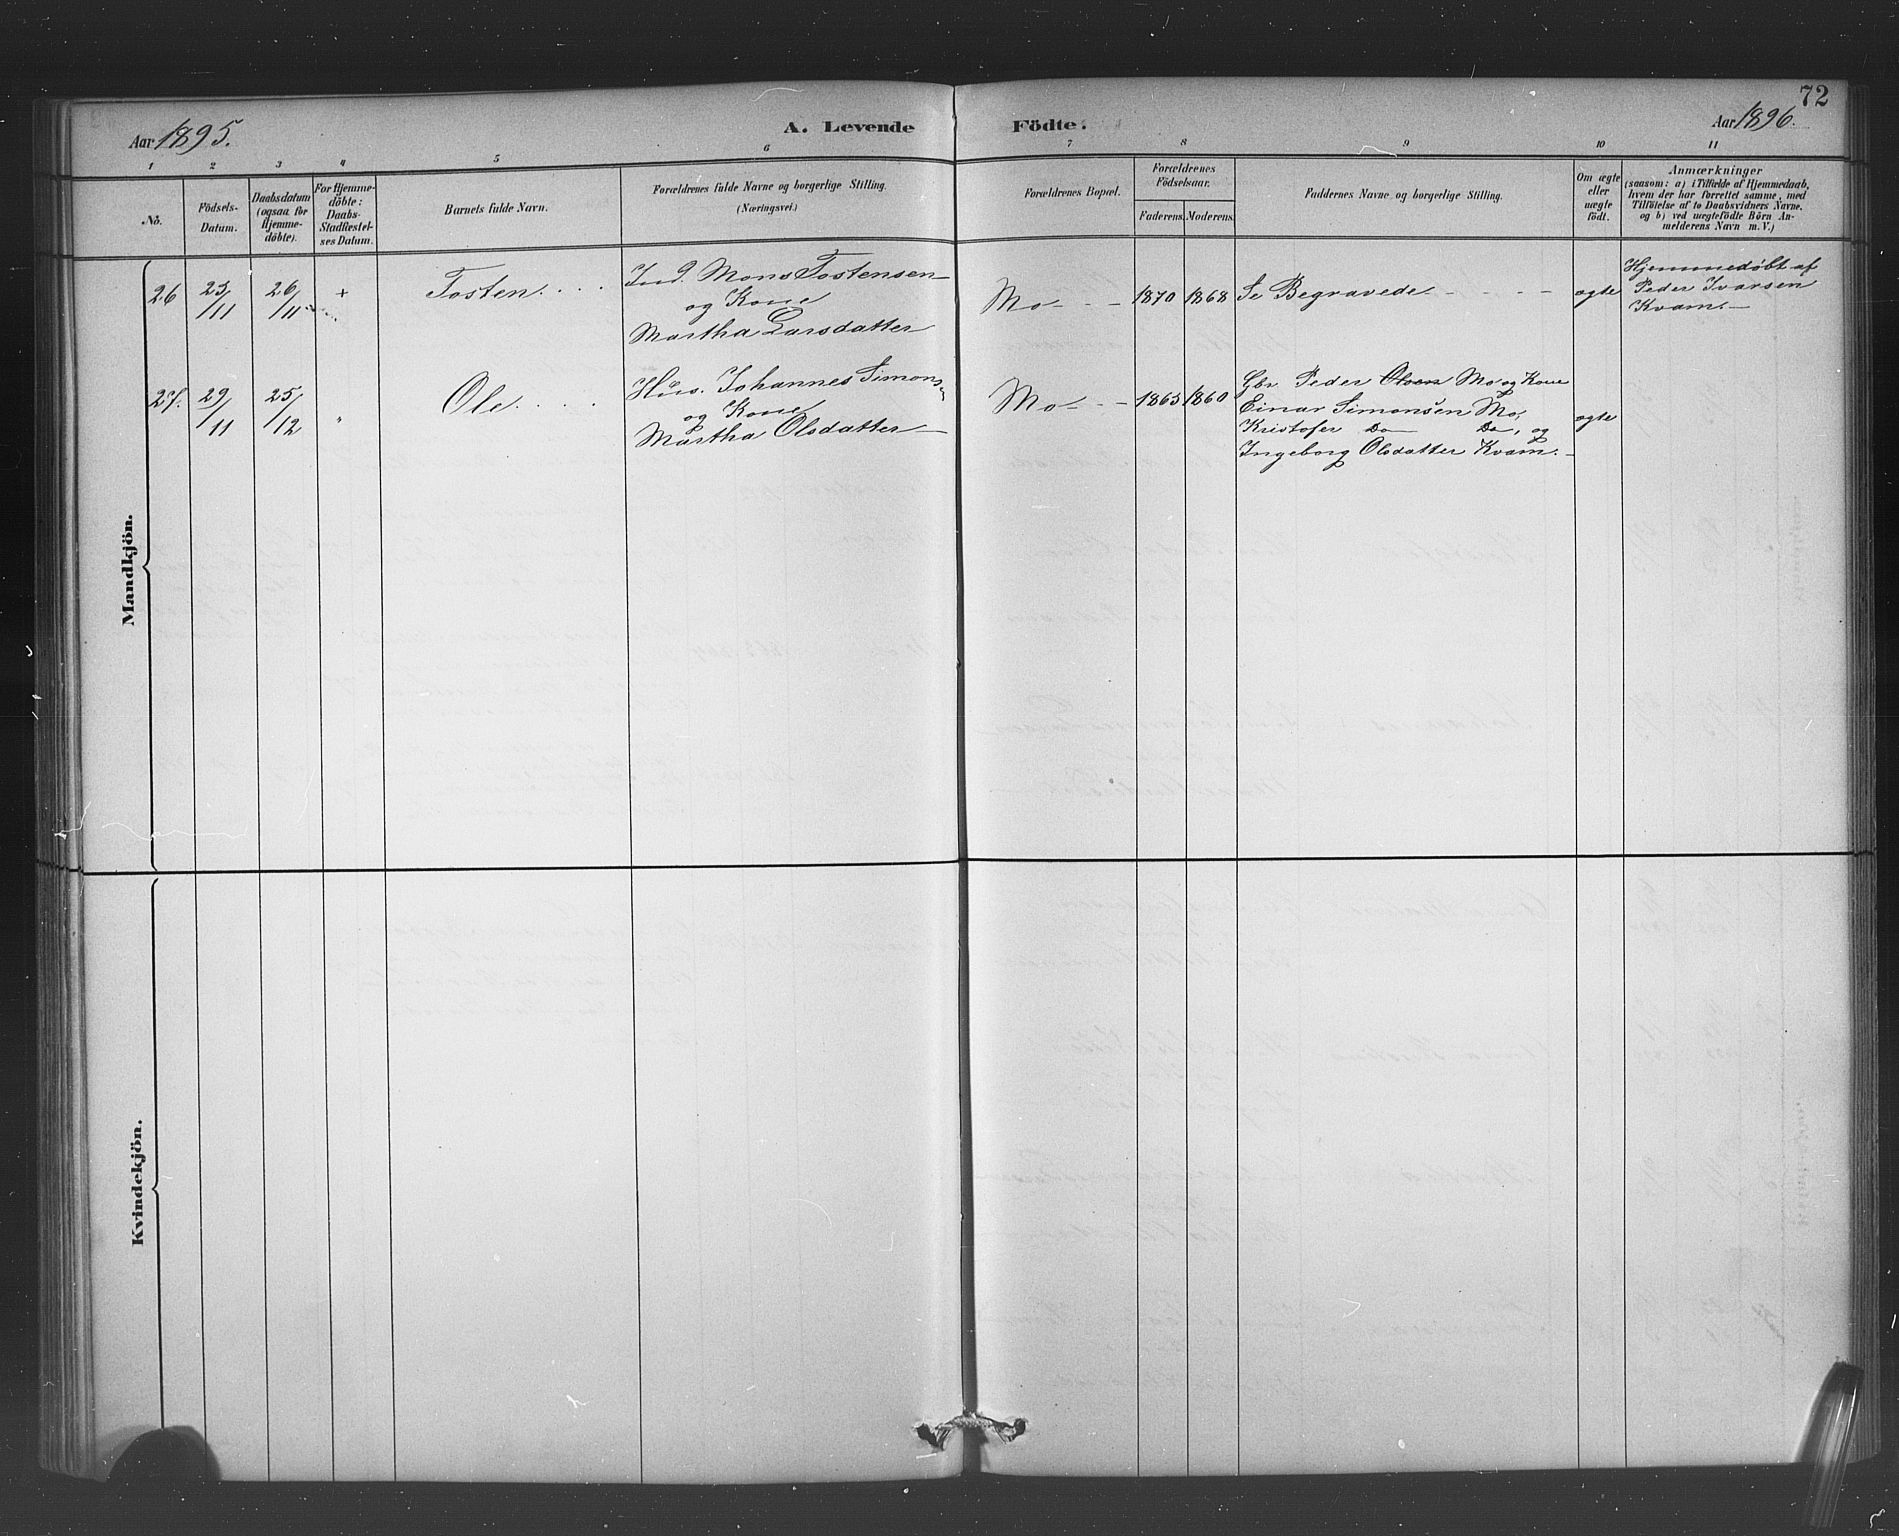 72
Aar 1895.
A. Levende
Födte.
Aar 1896.
1 2 3 4 5 6 7 8 9 10 11
No.
Födsels-
Datum.
Daabsdatum
(ogsaa for
Hjemme-
döbte).
For Hjemme-
döbte:
Daabs-
Stadfæstel-
ses Datum.
Barnets fulde Navn.
Forældrenes fulde Navne og borgerlige Stilling.
(Næringsvei.)
Forældrenes Bopæl.
Forældrenes
Födselsaar.
Faderens. Moderens.
Faddernes Navne og borgerlige Stilling.
Om ægte
eller
uægte
födt.
Anmærkninger
(saasom: a) i Tilfælde af Hjemmedaab,
hvem der har forrettet samme, med
Tilföielse af to Daabsvidners Navne.
og b) ved uægtefödte Börn An-
melderens Navn m. V.)
Mandkjön.
26 23/11 26/11 + Tosten. Ind. Mons Tostensen
og Kone
Martha Larsdatter
Mo 1870 1868 Se Begravede ægte
Hjemmedøbt af
Peder Ivarsen
Kvam.
27. 29/11 25/12 " Ole. Hus. Johannes Simons.
og Kone
Martha Olsdatter
Mo 1865 1860 Gbr Peder Olsen Mo og Kone
Einar Simonsen Mo,
Kristofer Do Do, og
Ingeborg Olsdatter Kvam.
ægte
Kvindekjön.